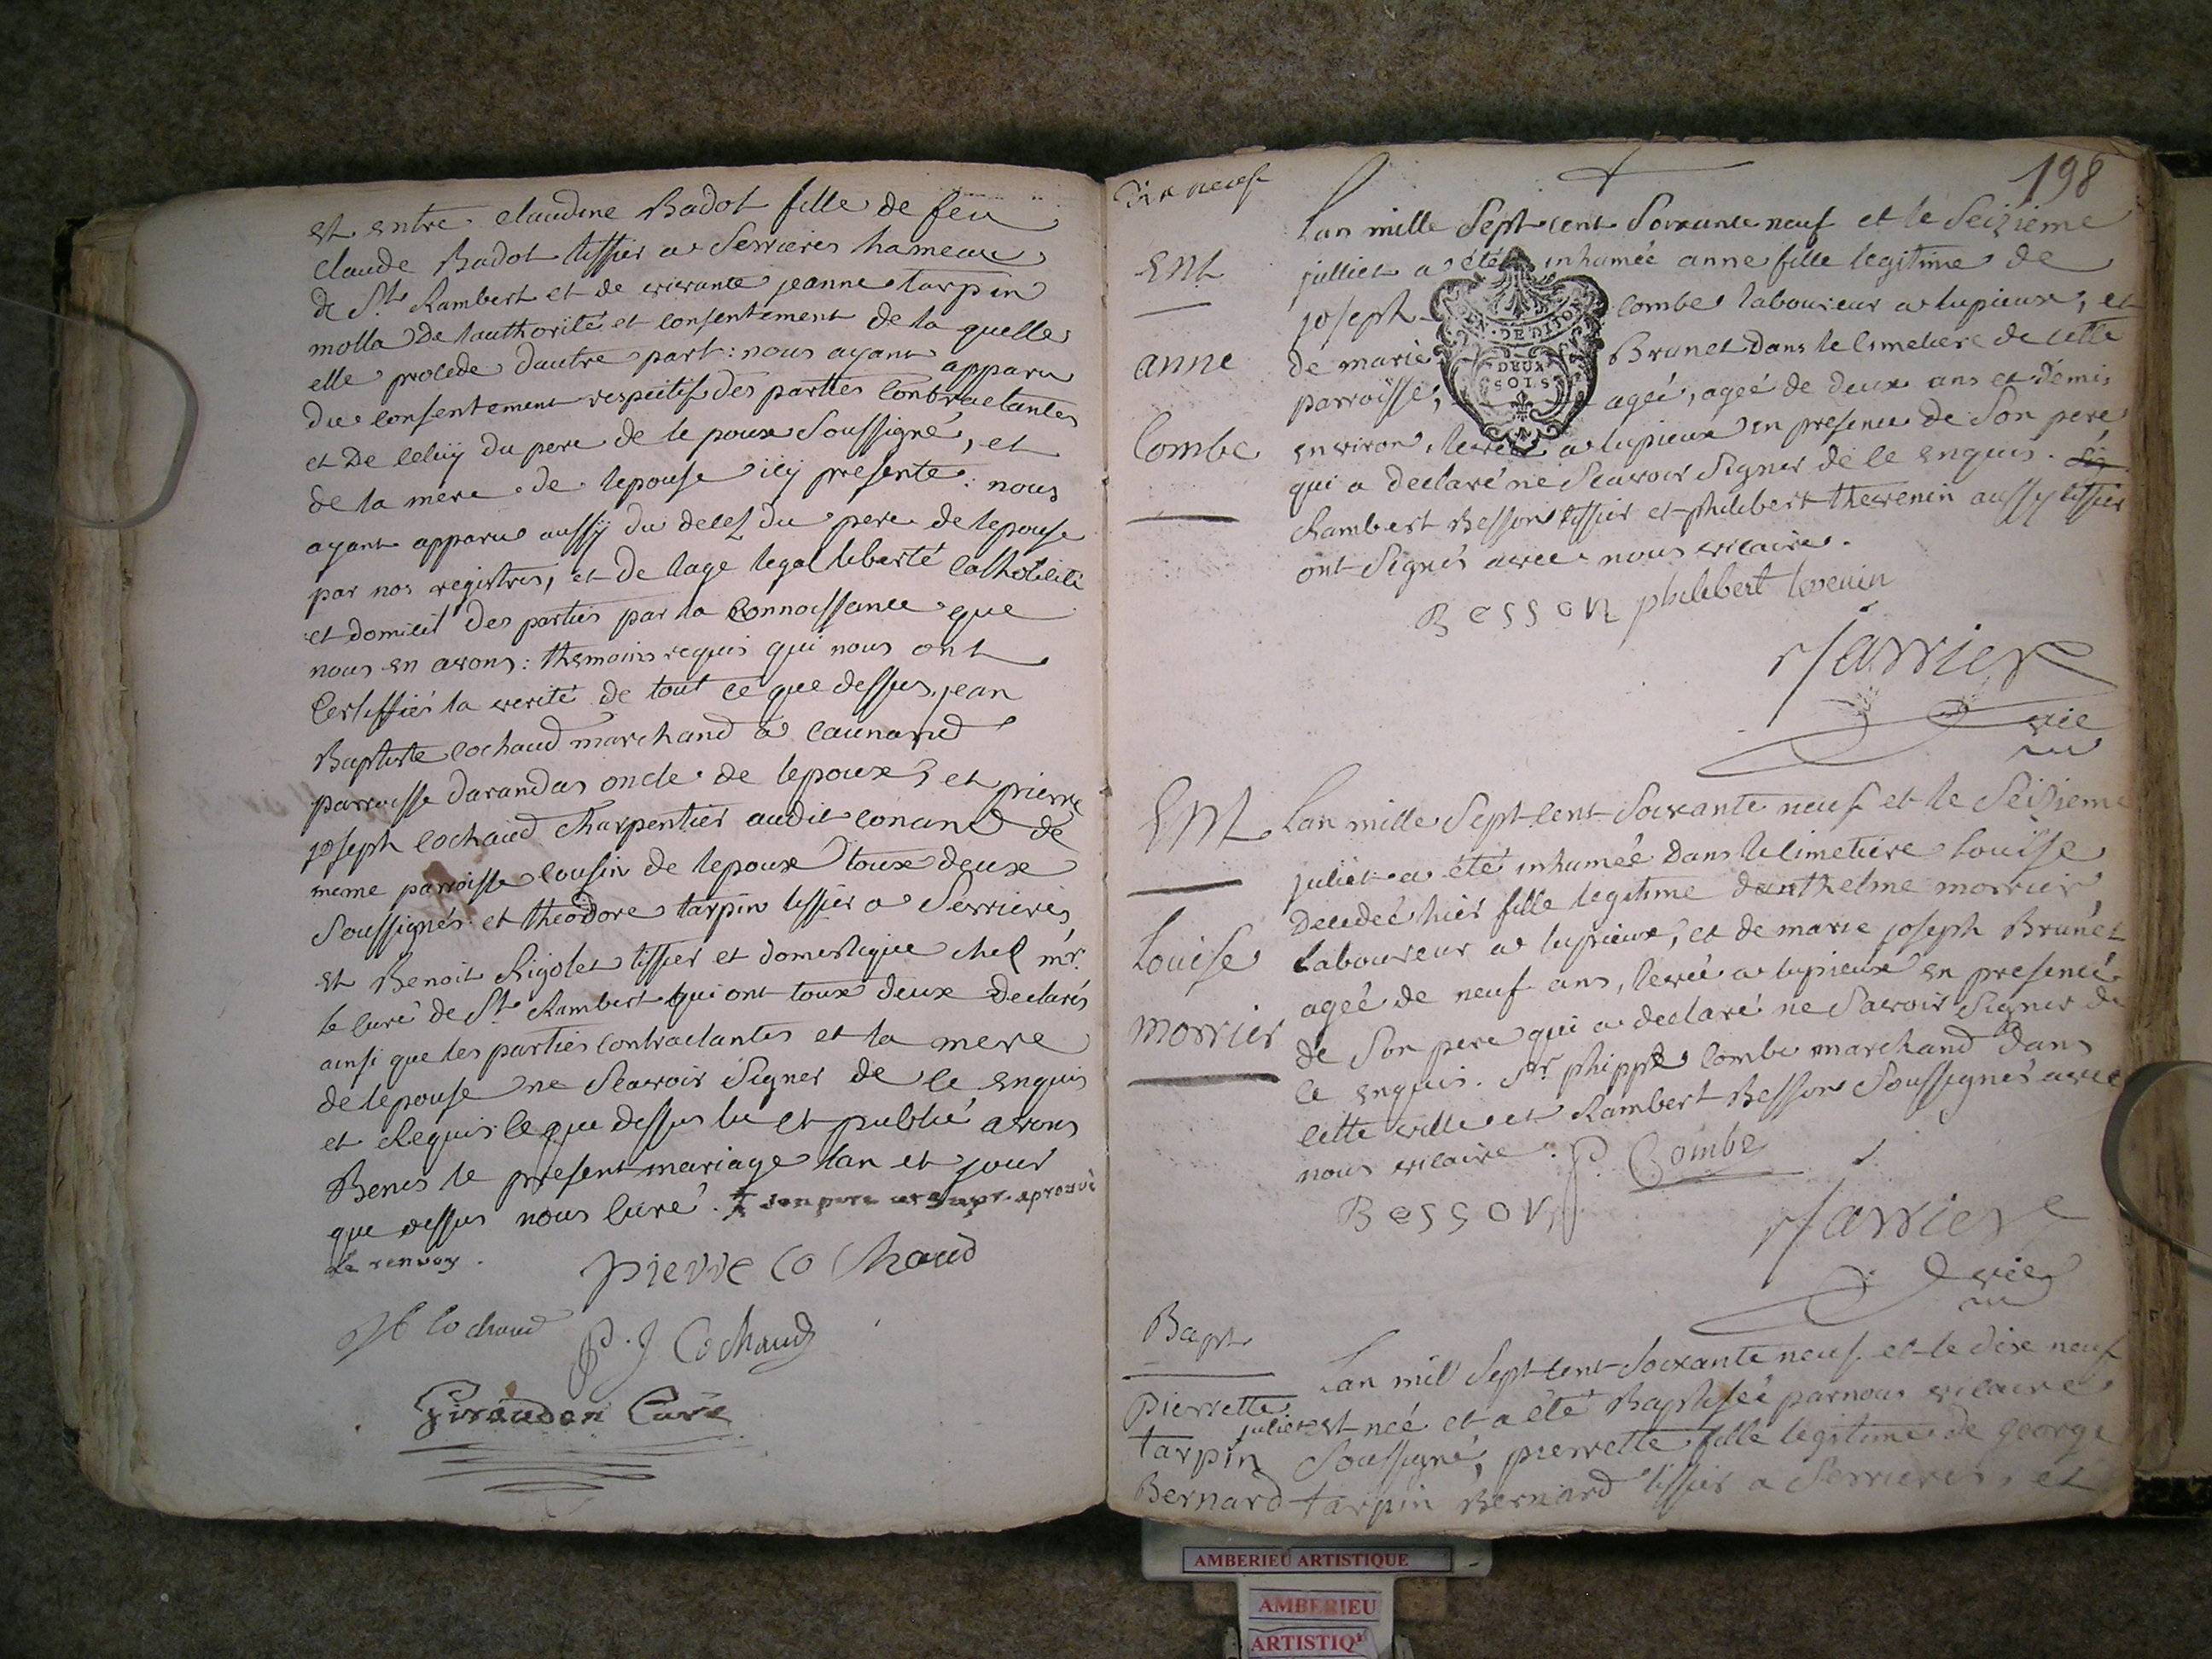 et entre claudine Badot fille de feu
claude Badot tissier a Serrieres hameau
de St Rambert et de vivante jeanne tarpin
molla De lauthorité et consentement de la quelle
elle procede dautre part : nous ayant apparu
du consentement respectif des parties contractantes
et De celuy du pere de lepoux Soussigné, et
de la mere de lepouse icy presente : nous
ayant apparu aussy du decez du pere de lepouse
par nos registres, et de lage legal liberté catholicité
et domicil des parties par la connoissance que
nous en avons : themoins requis qui nous ont
certiffiés la verité de tout ce que dessus, jean
Baptiste cochaud marchand a caunand
parroisse darandas oncle de lepoux, et pierre
joseph cochaud charpentier audit conand de
meme parroisse cousin de lepoux toux deux
Soussignés et theodore tarpin tissier a Serrieres,
et Benoit Rigolet tissier et domestique chez mr.
le curé de St Rambert qui ont toux deux declarés
ainsi que les parties contractantes et la mere
de lepouse ne Scavoir Signer de ce enquis
et Requis ce que dessus lu et publié avons
Benis le present mariage lan et jour
que dessus nous curé. ‡ son pere
le renvoy.
pierre cochaud
JB Cochaud
P. J Cochaud
Giraudon Curé
198
Dix neuf
Ent
anne
Combe
Lan mille Sept cent Soixante neuf et le Seizieme
julliet a été inhumée anne fille legitime de
joseph combe laboureur a lupieux, et
EN. DEDITION
DEUX
SOLS
de marie Brunet Dans le cimetiere de cette
parroisse, agéé, agéé de deux ans et demi
environ levée a lupieux en presence de Son pere
qui a declaré ne Scavoir Signer de ce enquis. Sig
Rambert Besson tissier et philibert thevenin aussy tissier
ont Signés avec nous vicaire.
Besson philibert tevenin
Jarrier
vic
Ent
Louise
morrier
Lan mille Sept cent Soixante neuf et le Seizieme
juliet a été inhumée Dans le cimetiere Louise
Decedeé hier fille legitime danthelme morrier
Laboureur a lupieux, et de marie joseph Brunet
agéé de neuf ans, levée a lupieux en presence
de Son pere qui a declaré ne Savoir Signer de
ce enquis. Sr. phippe combe marchand dans
cette ville et Rambert Besson Soussignés avec
nous vicaire. P. Combe
Besson
Jarrier
vic
Bapt
Pierrette
tarpin
Bernard
Lan mil Sept cent Soixante neuf et le dix neuf
juliet est neé et a été Baptiseé par nous vicaire
Soussigné, pierrette fille legitime de george
tarpin Bernard tissier a Serrieres, et
AMBERIEU ARTISTIQUE
AMBERIEU
ARTISTIQ